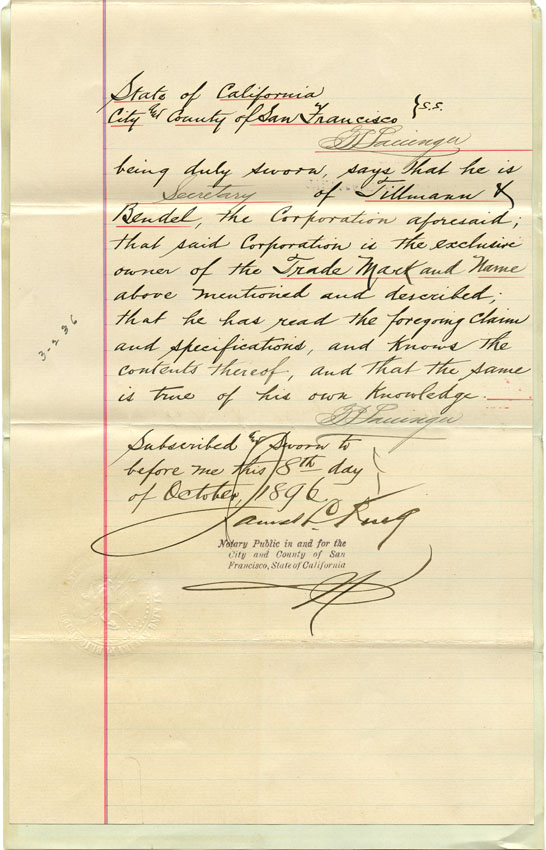 State of California
City & County of San Francisco } S.S.
being duly sworn, says that he is
Secretary of Tillmann &
Bendel, the Corporation aforesaid;
that said Corporation is the exclusive
owner of the Trade Mark and Name
above mentioned and described;
that he has read the foregoing Claim
and specifications, and knows the
contents thereof, and that the same
is true of his own knowledge.
Subscribed & Sworn to
before me this 8th day
of October, 1896.
James L. King
Notary Public in and for the
City and County of San
Francisco, State of California
3-236